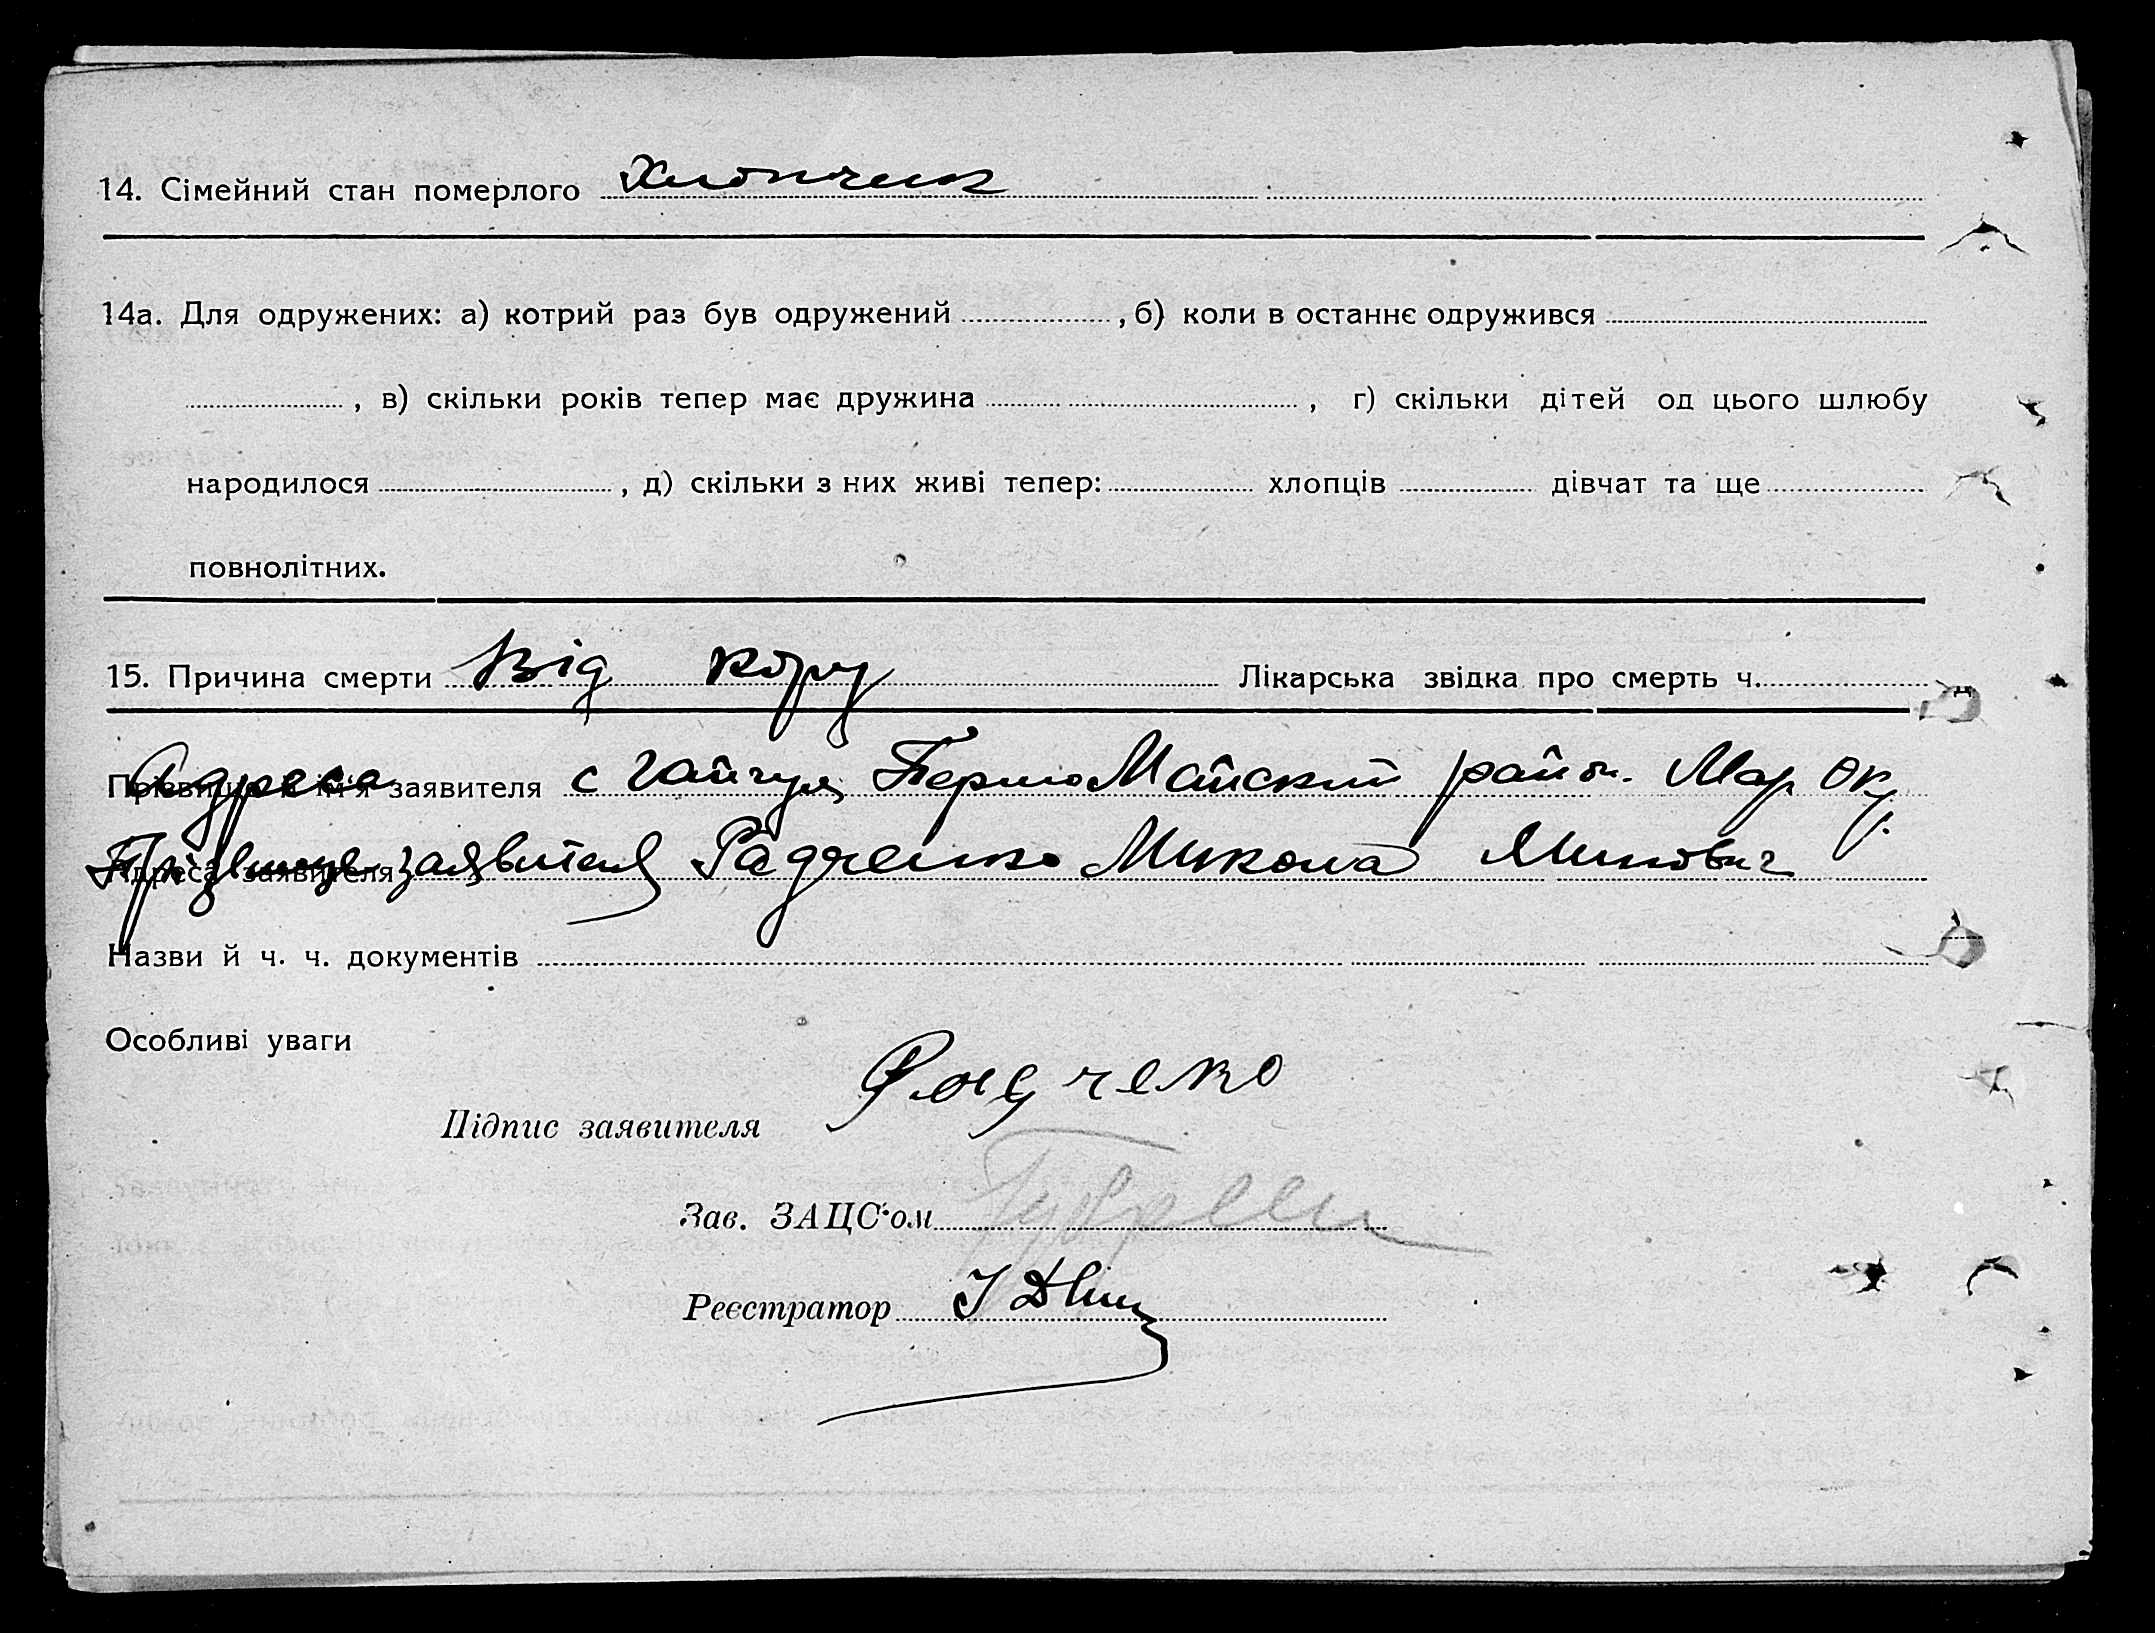 14. Сімейний стан померлого Хлопчик
14а. Для одружених: а) котрий раз був одружений , б) коли в останнє одружився
, в) скільки років тепер має дружина , г) скільки дітей од цього шлюбу
народилося , д) скільки з них живі тепер: хлопців дівчат та ще
повнолітних.
15. Причина смерти Від кору Лікарська звідка про смерть ч.
Адреса
Прізвище й ім'я заявителя с Гайчул ПервоМайский район. Мар окр.
Прізвище заявителя Радченко Микола Минович
Адреса заявителя
Назви й ч. ч. документів
Особливі уваги
Підпис заявителя Радчеко
Зав. ЗАЦС'ом
Реєстратор